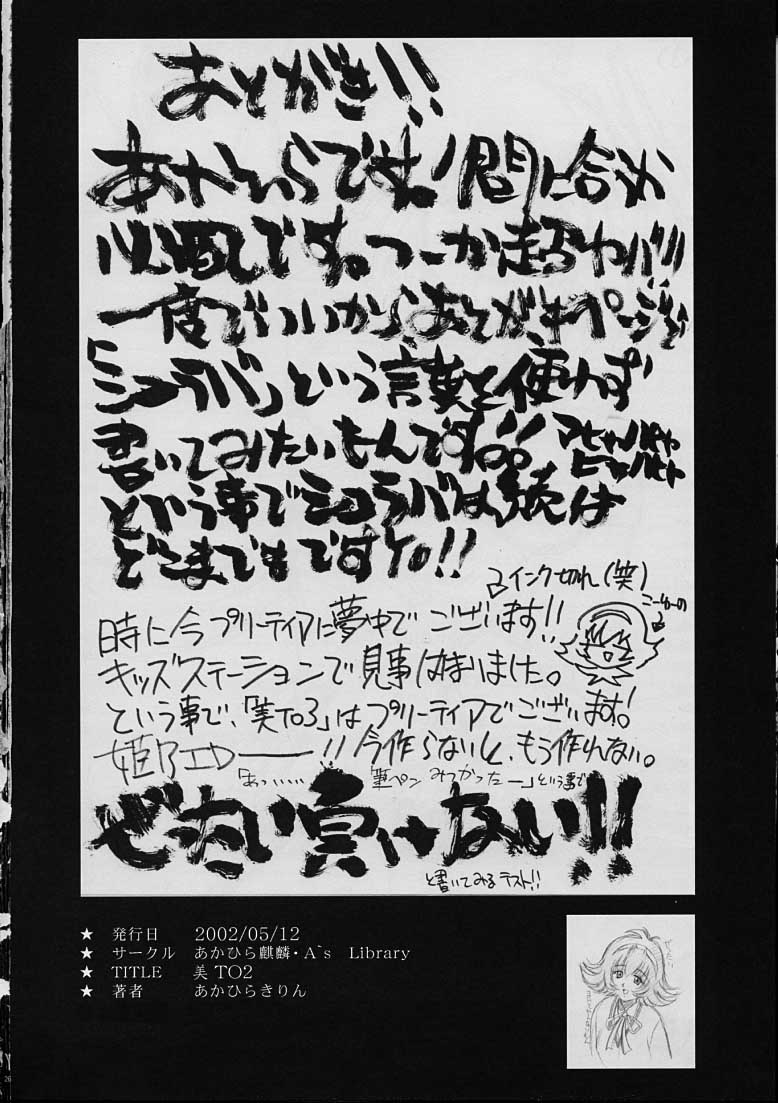 あとがき!!
あかひらです。!間に合うか
心配です。つーか超ヤバ!!!
一度でいいから、あとがきページで
「シュラバ」という言葉を使わず
書いてみたいもんです!!。。アヒャハヒャ
ヒャハヒャ
という事でシュラバは続くは
どこまでもですYO!!
インク切れ(笑)
こーゆーの
時に今プリーティアに夢中でございます!!
キッズステーションで見事はまりました。
という事で、「美TO3」はプリーティアでございます!
姫乃エロー!!今作らないと、もう作れない。
「あっ、、、、筆ペン みつかったー」というまで
ぜったい負けない!!
と書いてみるテスト!!
★ 発行日 2002/05/12
★ サークル あかひら麒麟・A`s Library
★ TITLE 美 TO2
★ 著者 あかひらきりん
26